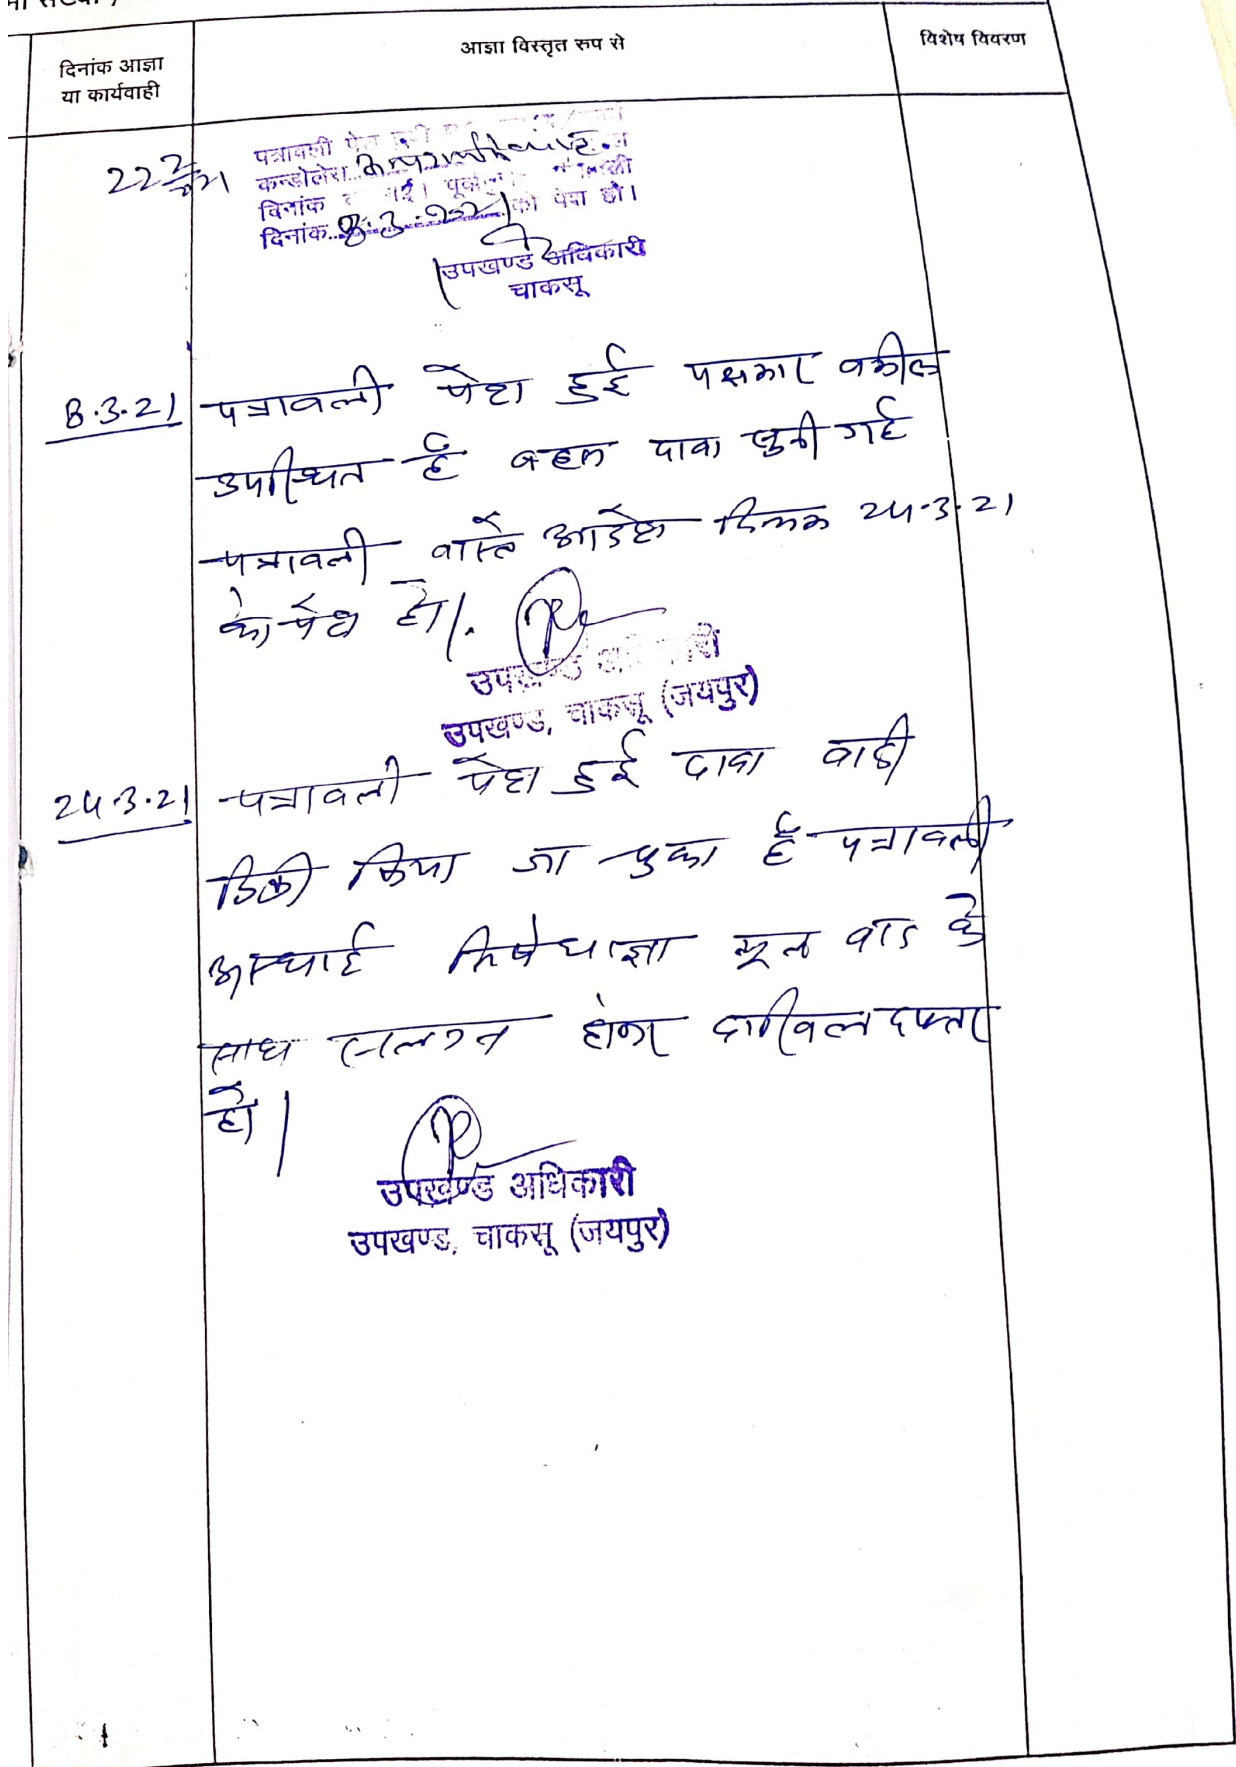 दिनांक आज्ञा
या कार्यवाही
आज्ञा विस्तृत रुप से
विशेष विवरण
पत्रावली
कन्डोलेंस
दिनांक
दिनांक 8.3.2021 को पेश हो।
उपखण्ड अधिकारी
चाकसू
8.3.21 पत्रावली पेश हुई पक्षकार वकील
उपस्थित है बहस दावा सुनी गई
पत्रावली वास्ते आदेश दिनांक 24.3.21
को पेश हो।
उपखण्ड
उपखण्ड, चाकसू (जयपुर)
24.3.21 पत्रावली पेश हुई दावा वादी
डिक्री किया जा चुका है पत्रावली
अस्थाई निषेधाज्ञा मूल वाद के
साथ सलग्न होकर दाखिल दफ्तर
हो।
उपखण्ड अधिकारी
उपखण्ड, चाकसू (जयपुर)